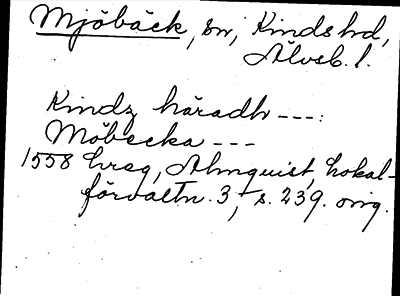 Mjöbäck, sn, Kinds hd,
Älvsb. l.
Kindz häradh ---:
Möbecka ---
1558 hreg, Almquist, Lokal-
förvaltn. 3, s. 239. orig.